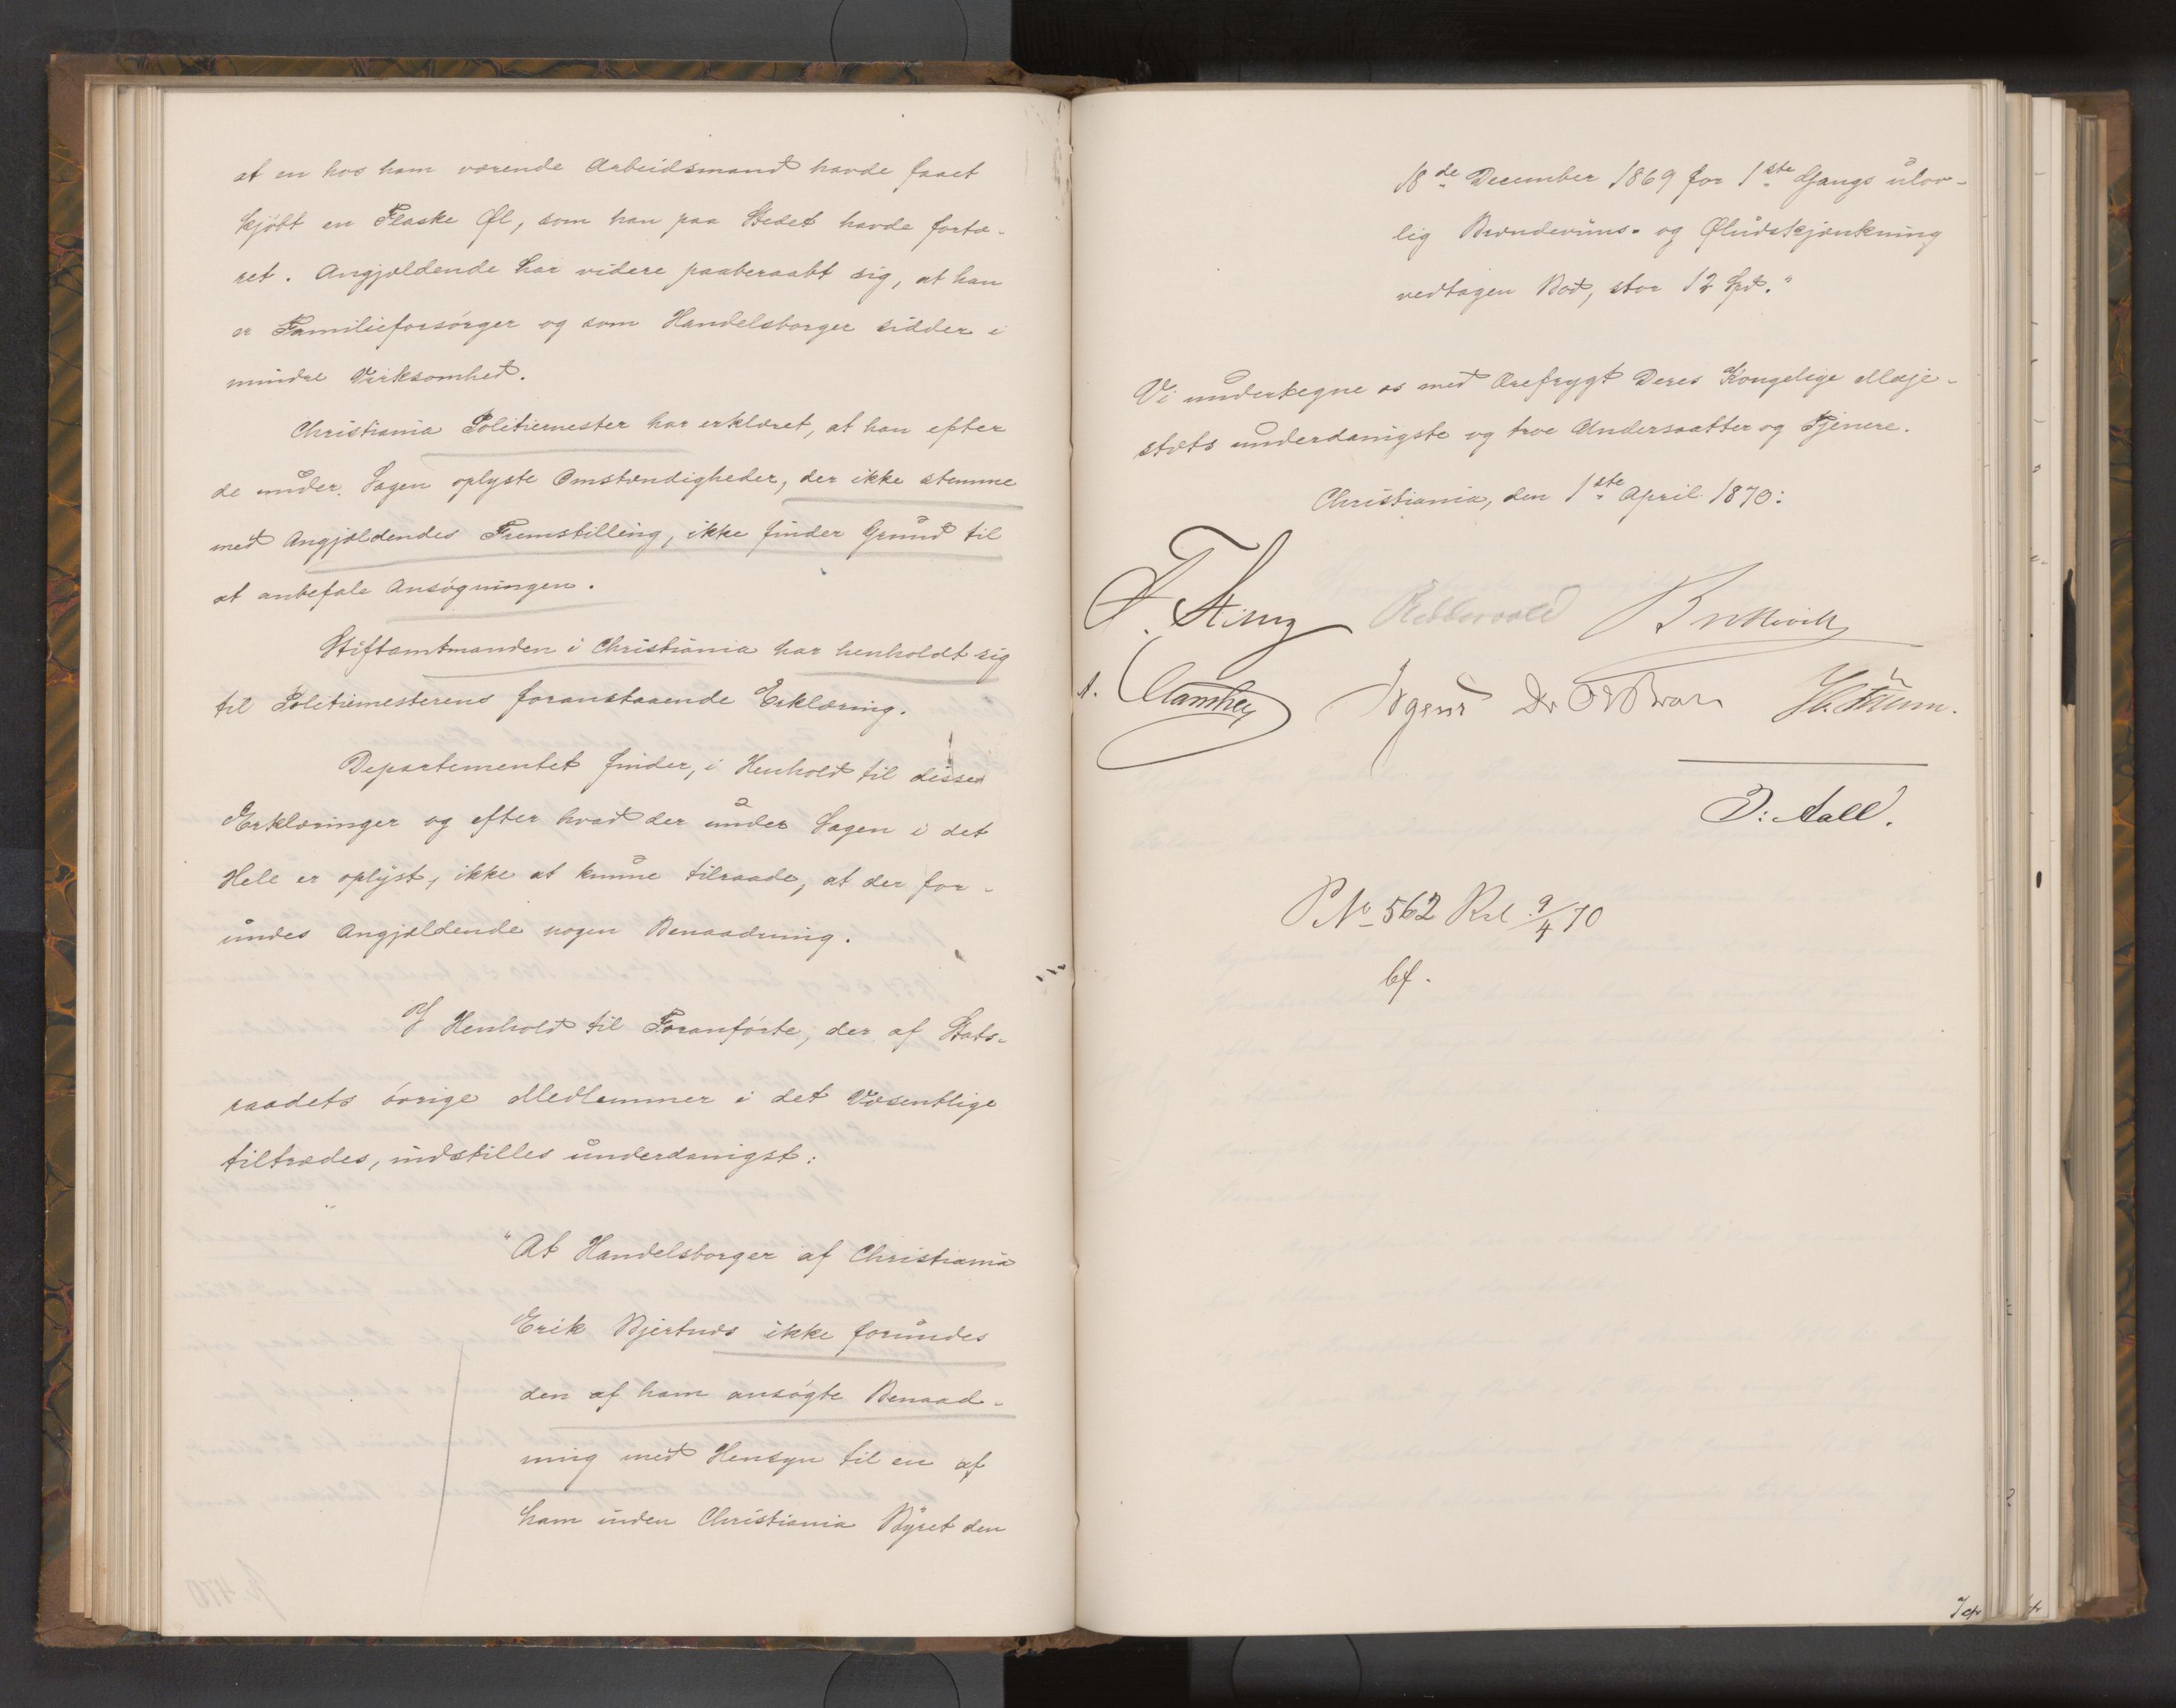 at en hos ham værende Arbeidsmand havde faaet
kjøbt en Flaske Øl, som han paa Stedet havde fortæ-
ret. Angjældende har videre paaberaabt sig, at han
er Familieforsørger og som Handelsborger sidder i
mindre Virksomhed.
Christiania Politiemester har erklæret, at han efter
de under Sagen oplyste Omstændigheder, der ikke stemme
med Angjældendes Fremstilling, ikke finder Grund til
at anbefale Ansøgningen.
Stiftamtmanden i Christiania har henholdt sig
til Politiemesterens foranstaaende Erklæring.
Departementet finder, i Henhold til disse
Erklæringer og efter hvad der under Sagen i det
Hele er oplyst, ikke at kunne tilraade, at der for-
undes Angjældende nogen Benaadning.
I Henhold til Foranførte, der af Stats-
raadets øvrige Medlemmer i det Væsentlige
tiltrædes, indstilles underdanigst:
"At Handelsborger af Christiania
Erik Bjertnæs ikke forundes
den af ham ansøgte Benaad-
ning med Hensyn til en af
ham inden Christiania Byret den
18de December 1869 for 1ste Gangs ulov-
lig Brændeviins- og Øludskjænkning
vedtagen Bod, stor 12 Spd."
Vi undertegne os med Ærefrygt Deres Kongelige Maje-
stæts underdanigste og troe Undersaatter og Tjenere.
Christiania, den 1ste April 1870:
F. Stang Riddervold Bretteville
Manthey Irgens
D. Aall.
P No 562 Rsl 9/4 70
bf.